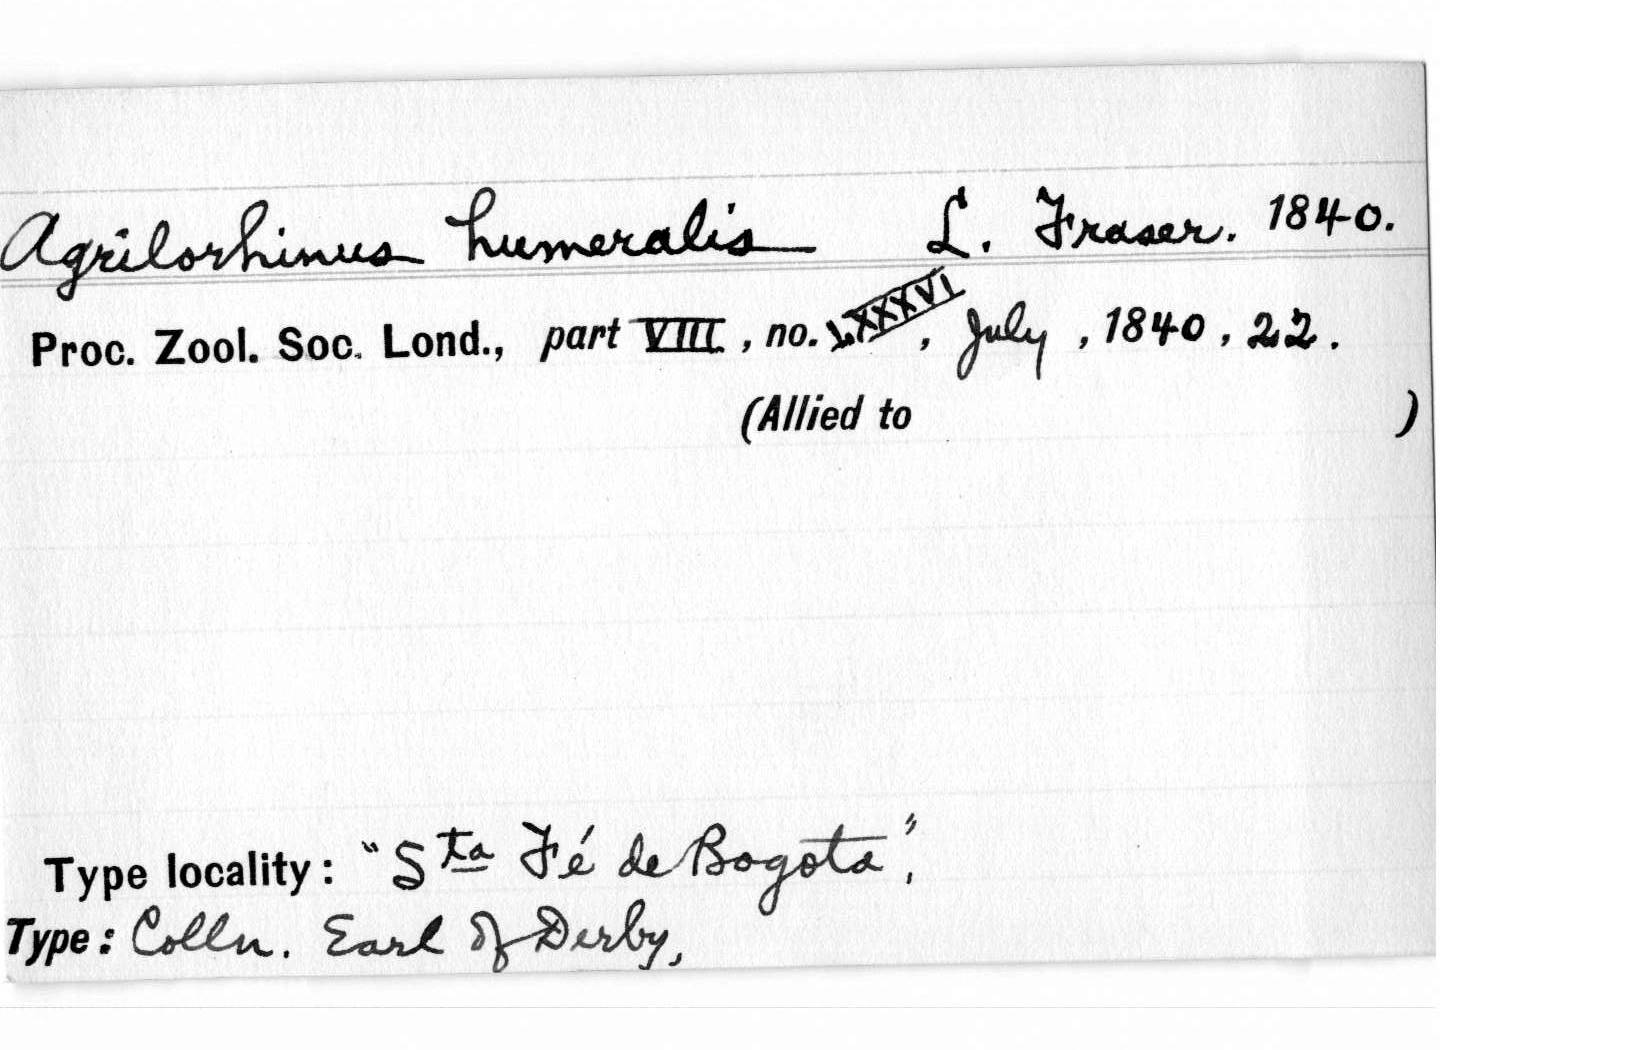 Agrilorhinus humeralis L. Fraser. 1840.
Proc. Zool. Soc. Lond., part VIII, no. LXXXVI, July, 1840, 22.
(Allied to )
Type locality: "Sta Fé de Bogota",
Type: Colln. Earl of Derby,